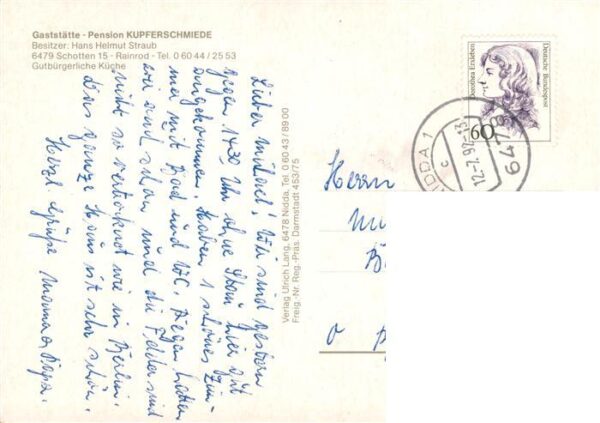 Gaststätte - Pension KUPFERSCHMIEDE
Besitzer: Hans Helmut Straub
6479 Schotten 15 - Rainrod - Tel. 0 60 44 / 25 53
Gutbürgerliche Küche
Lieber Michael! Wir sind gestern
gegen 14³⁰ Uhr ohne Stau hier gut
angekommen. Haben 1 schönes Zim-
mer mit Bad und WC. Regen hatten
wir auch schon und die Felder sind
nicht so vertrocknet wie in Berlin.
Das ganze Haus ist sehr schön.
Herzl. Grüße Mama + Papa.
Verlag Ulrich Lang, 6478 Nidda, Tel. 0 60 43 / 89 00
Freig.-Nr. Reg.-Präs. Darmstadt 453/75
Dorothea Erxleben
Deutsche Bundespost
60
NIDDA 1
c
12.-7.92
6478
Herrn